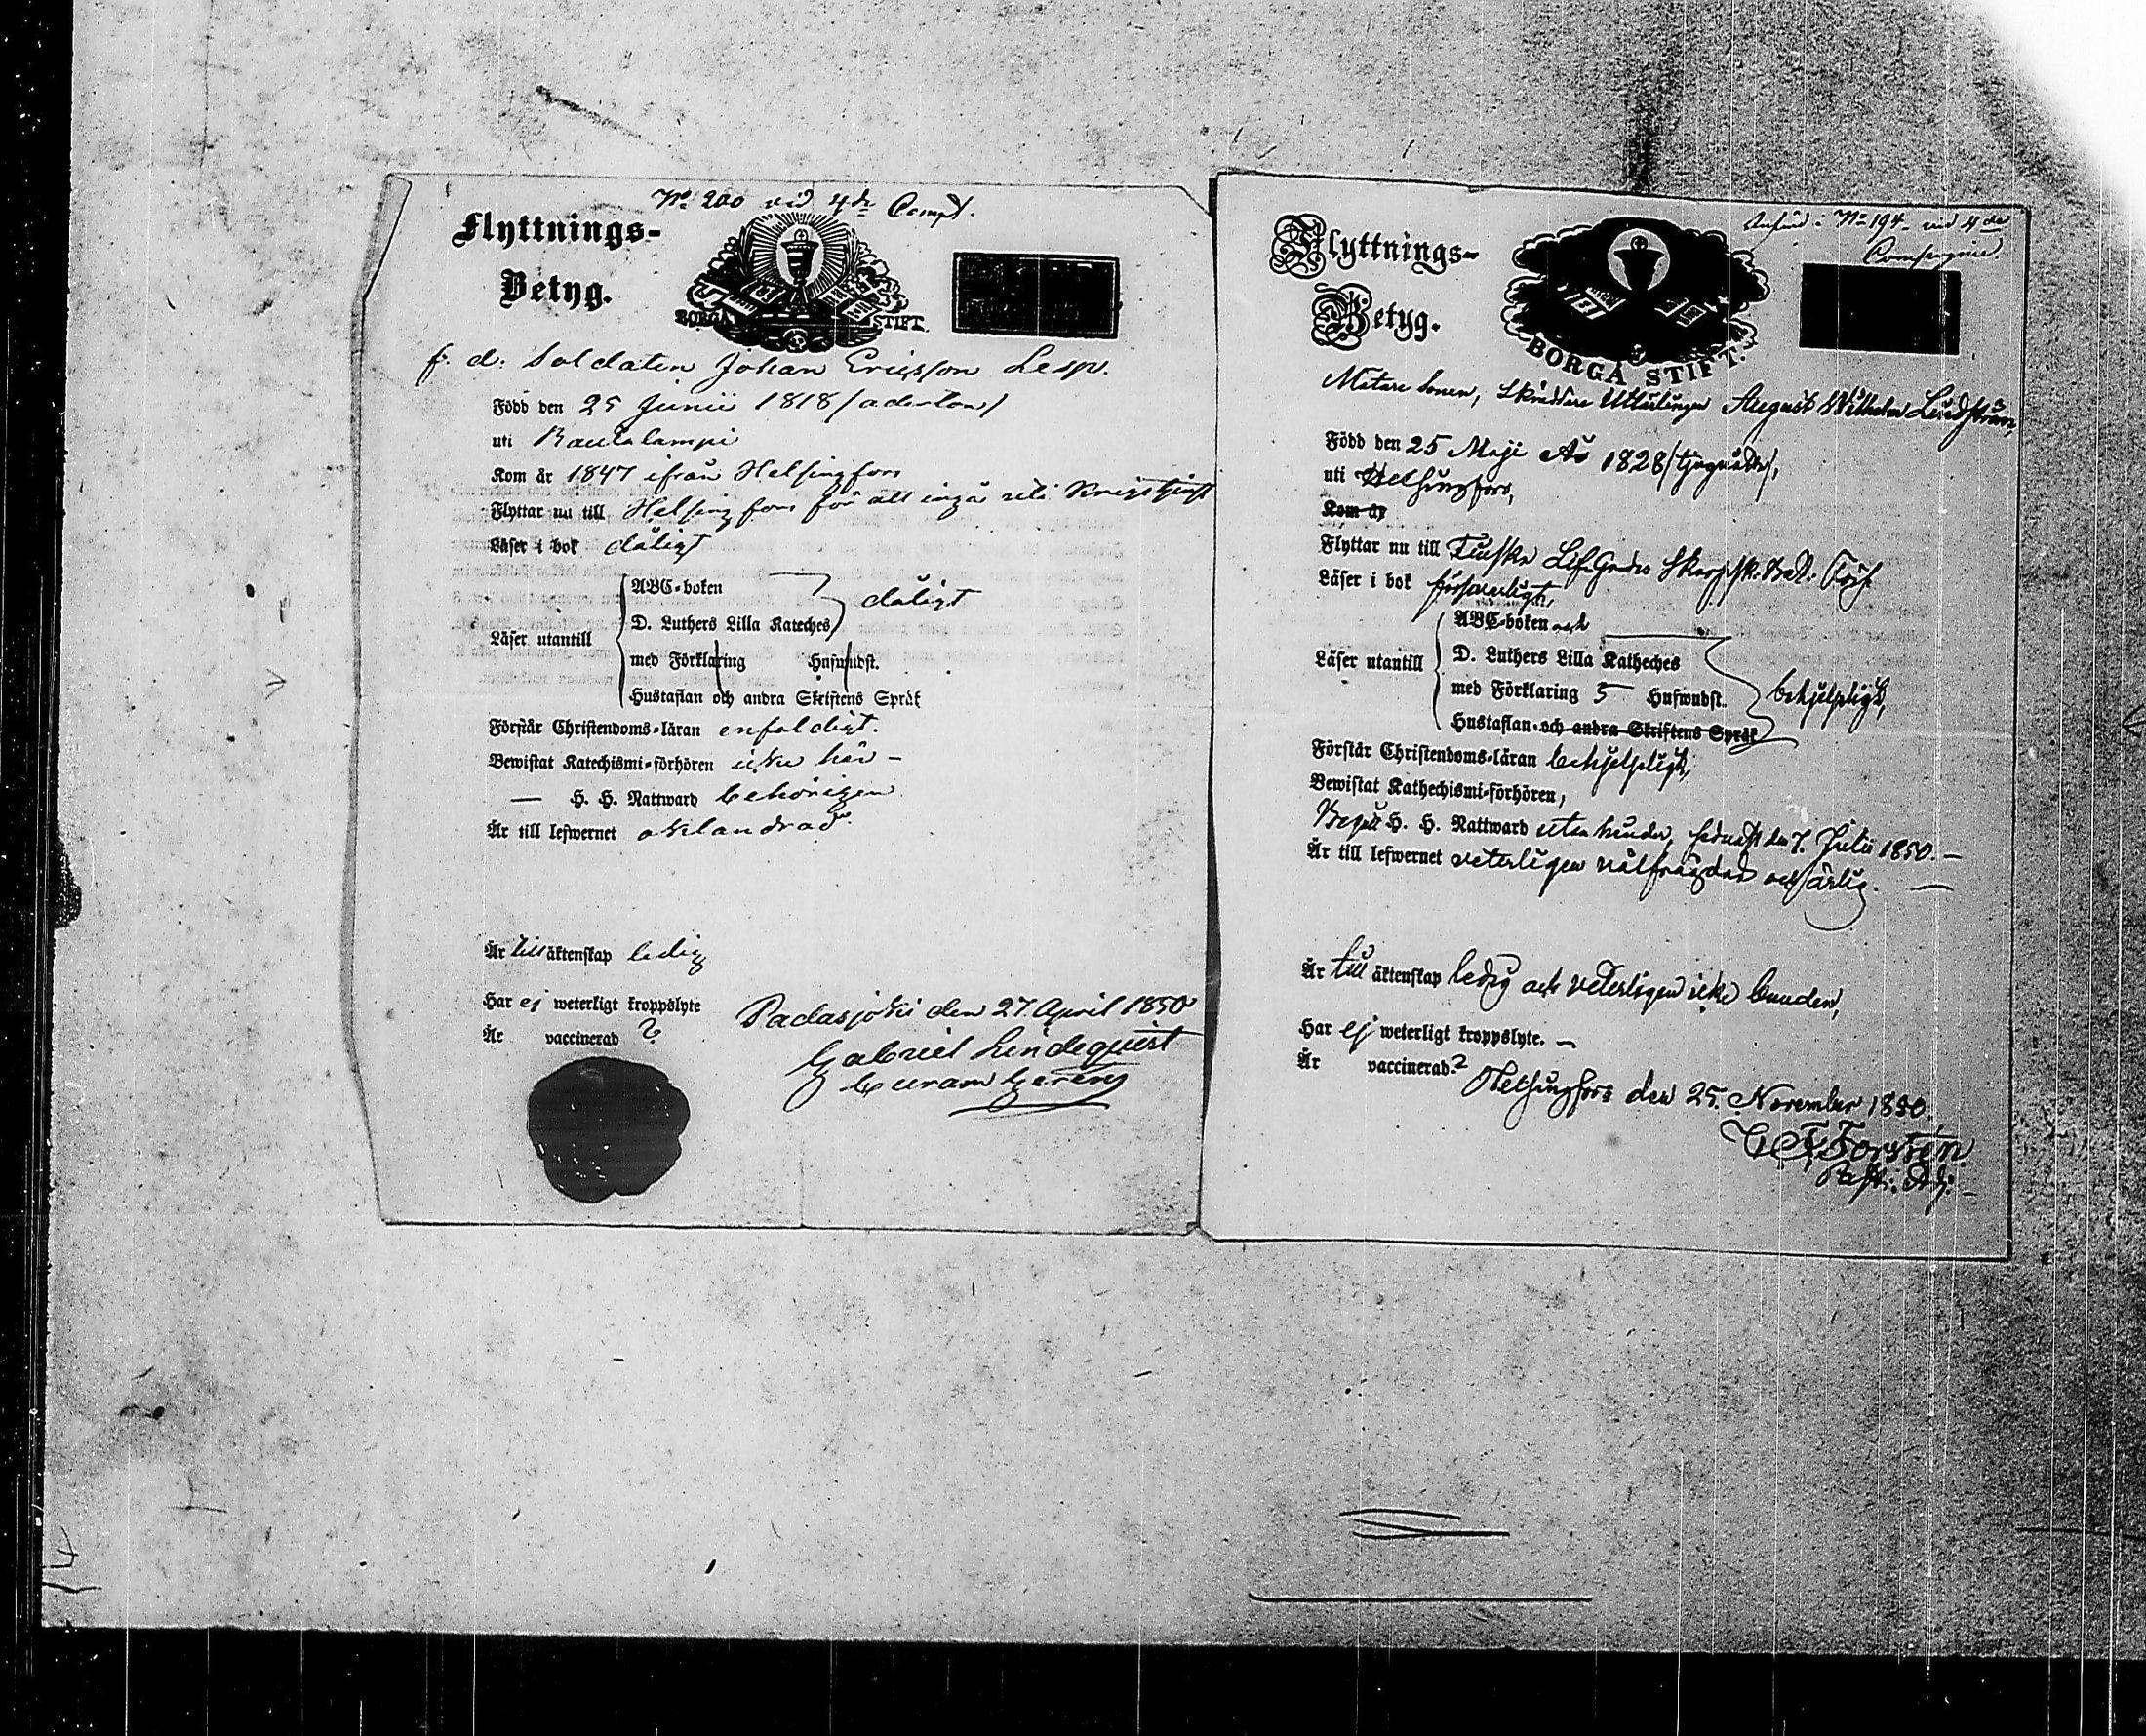 No 200 vid 4de Comp.
Flyttnings-
Betyg.
BORGÅ STIFT.
f. d. Soldaten Johan Ericsson Lesp.
Född den 25 Junii 1818 /aderton/
uti Rautalampi
Kom år 1847 ifrån Helsingfors
Flyttar nu till Helsingfors för att ingå uti Krigstjenst
Läser i bok dåligt
Läser utantill
ABC-boken
D. Luthers Lilla Kateches
dåligt
med Förklaring Hufwudst.
Hustaflan och andra Skriftens Språk
Förstår Christendoms-läran enfaldigt.
Bewistat Katechismi-förhören icke här –
— H. H. Nattward behörigen
Är till lefwernet oklandrad.
Är till äktenskap ledig
Har ej weterligt kroppslyte
Är vaccinerad ?
Padasjoki den 27. April 1850
Gabriel Lindequist
Curam Gerens
Införd i No 194 vid 4de
Compagnie
Flyttnings-
Betyg.
BORGÅ STIFT.
Skräddare Utlärlingen August Wilhelm Lindström,
Född den 25 Maji År 1828 /tjuguåtta/,
uti Helsingfors,
Kom år
Flyttar nu till Finska Lif-Gardes Skarpsk. Bat. Förs.
Läser i bok försvarligt,
Läser utantill
ABC-boken och
D. Luthers Lilla Katheches
med Förklaring 5 Hufwudst.
Hustaflan och andra Skriftens Språk
behjelpligt,
Förstår Christendoms-läran behjelpligt,
Bewistat Kathechismi-förhören,
Begått H. H. Nattward utan hinder, sednast den 7. Julii 1850. —
Är till lefwernet veterligen välfräjdad och ärlig. —
Är till äktenskap ledig och veterligen icke bunden,
Har ej weterligt kroppslyte. —
Är vaccinerad ?
Helsingfors den 25. November 1850
Forstén
Past. Adj.